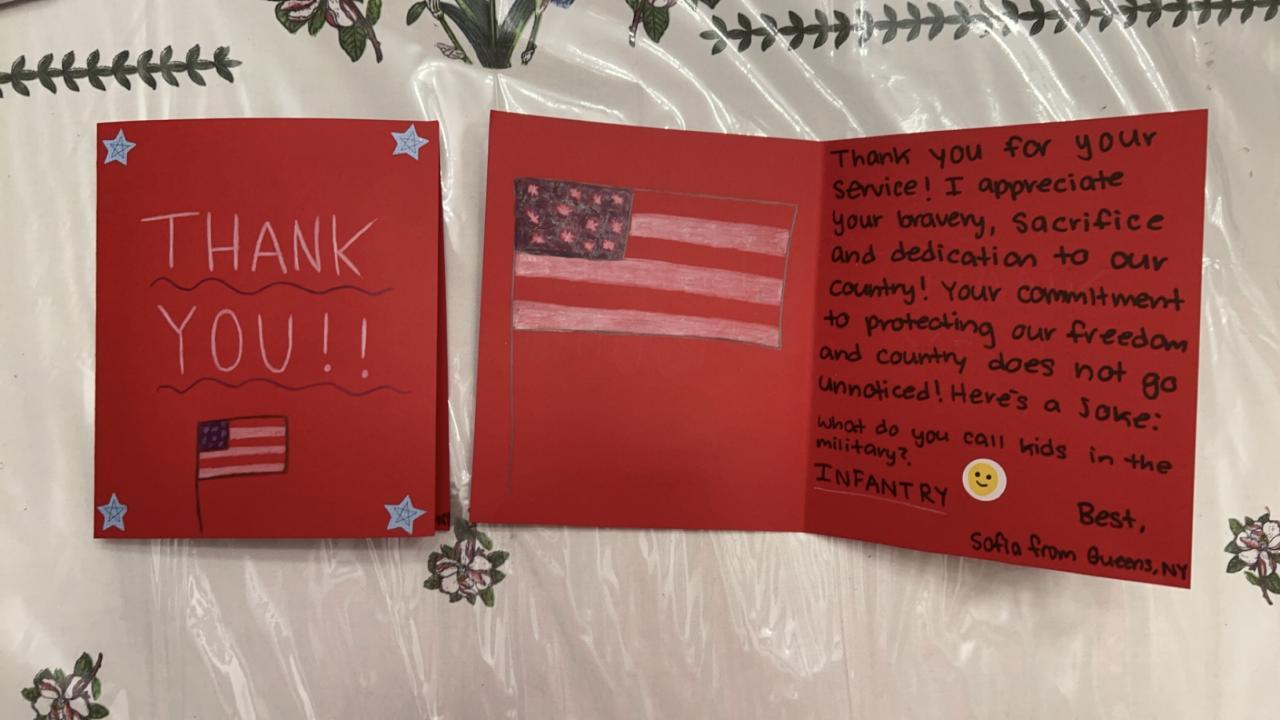 THANK
YOU!!
Thank you for your
service! I appreciate
your bravery, sacrifice
and dedication to our
country! Your commitment
to protecting our freedom
and country does not go
unnoticed! Here's a joke:
What do you call kids in the
military?
INFANTRY
Best,
Sofia from Queens, NY